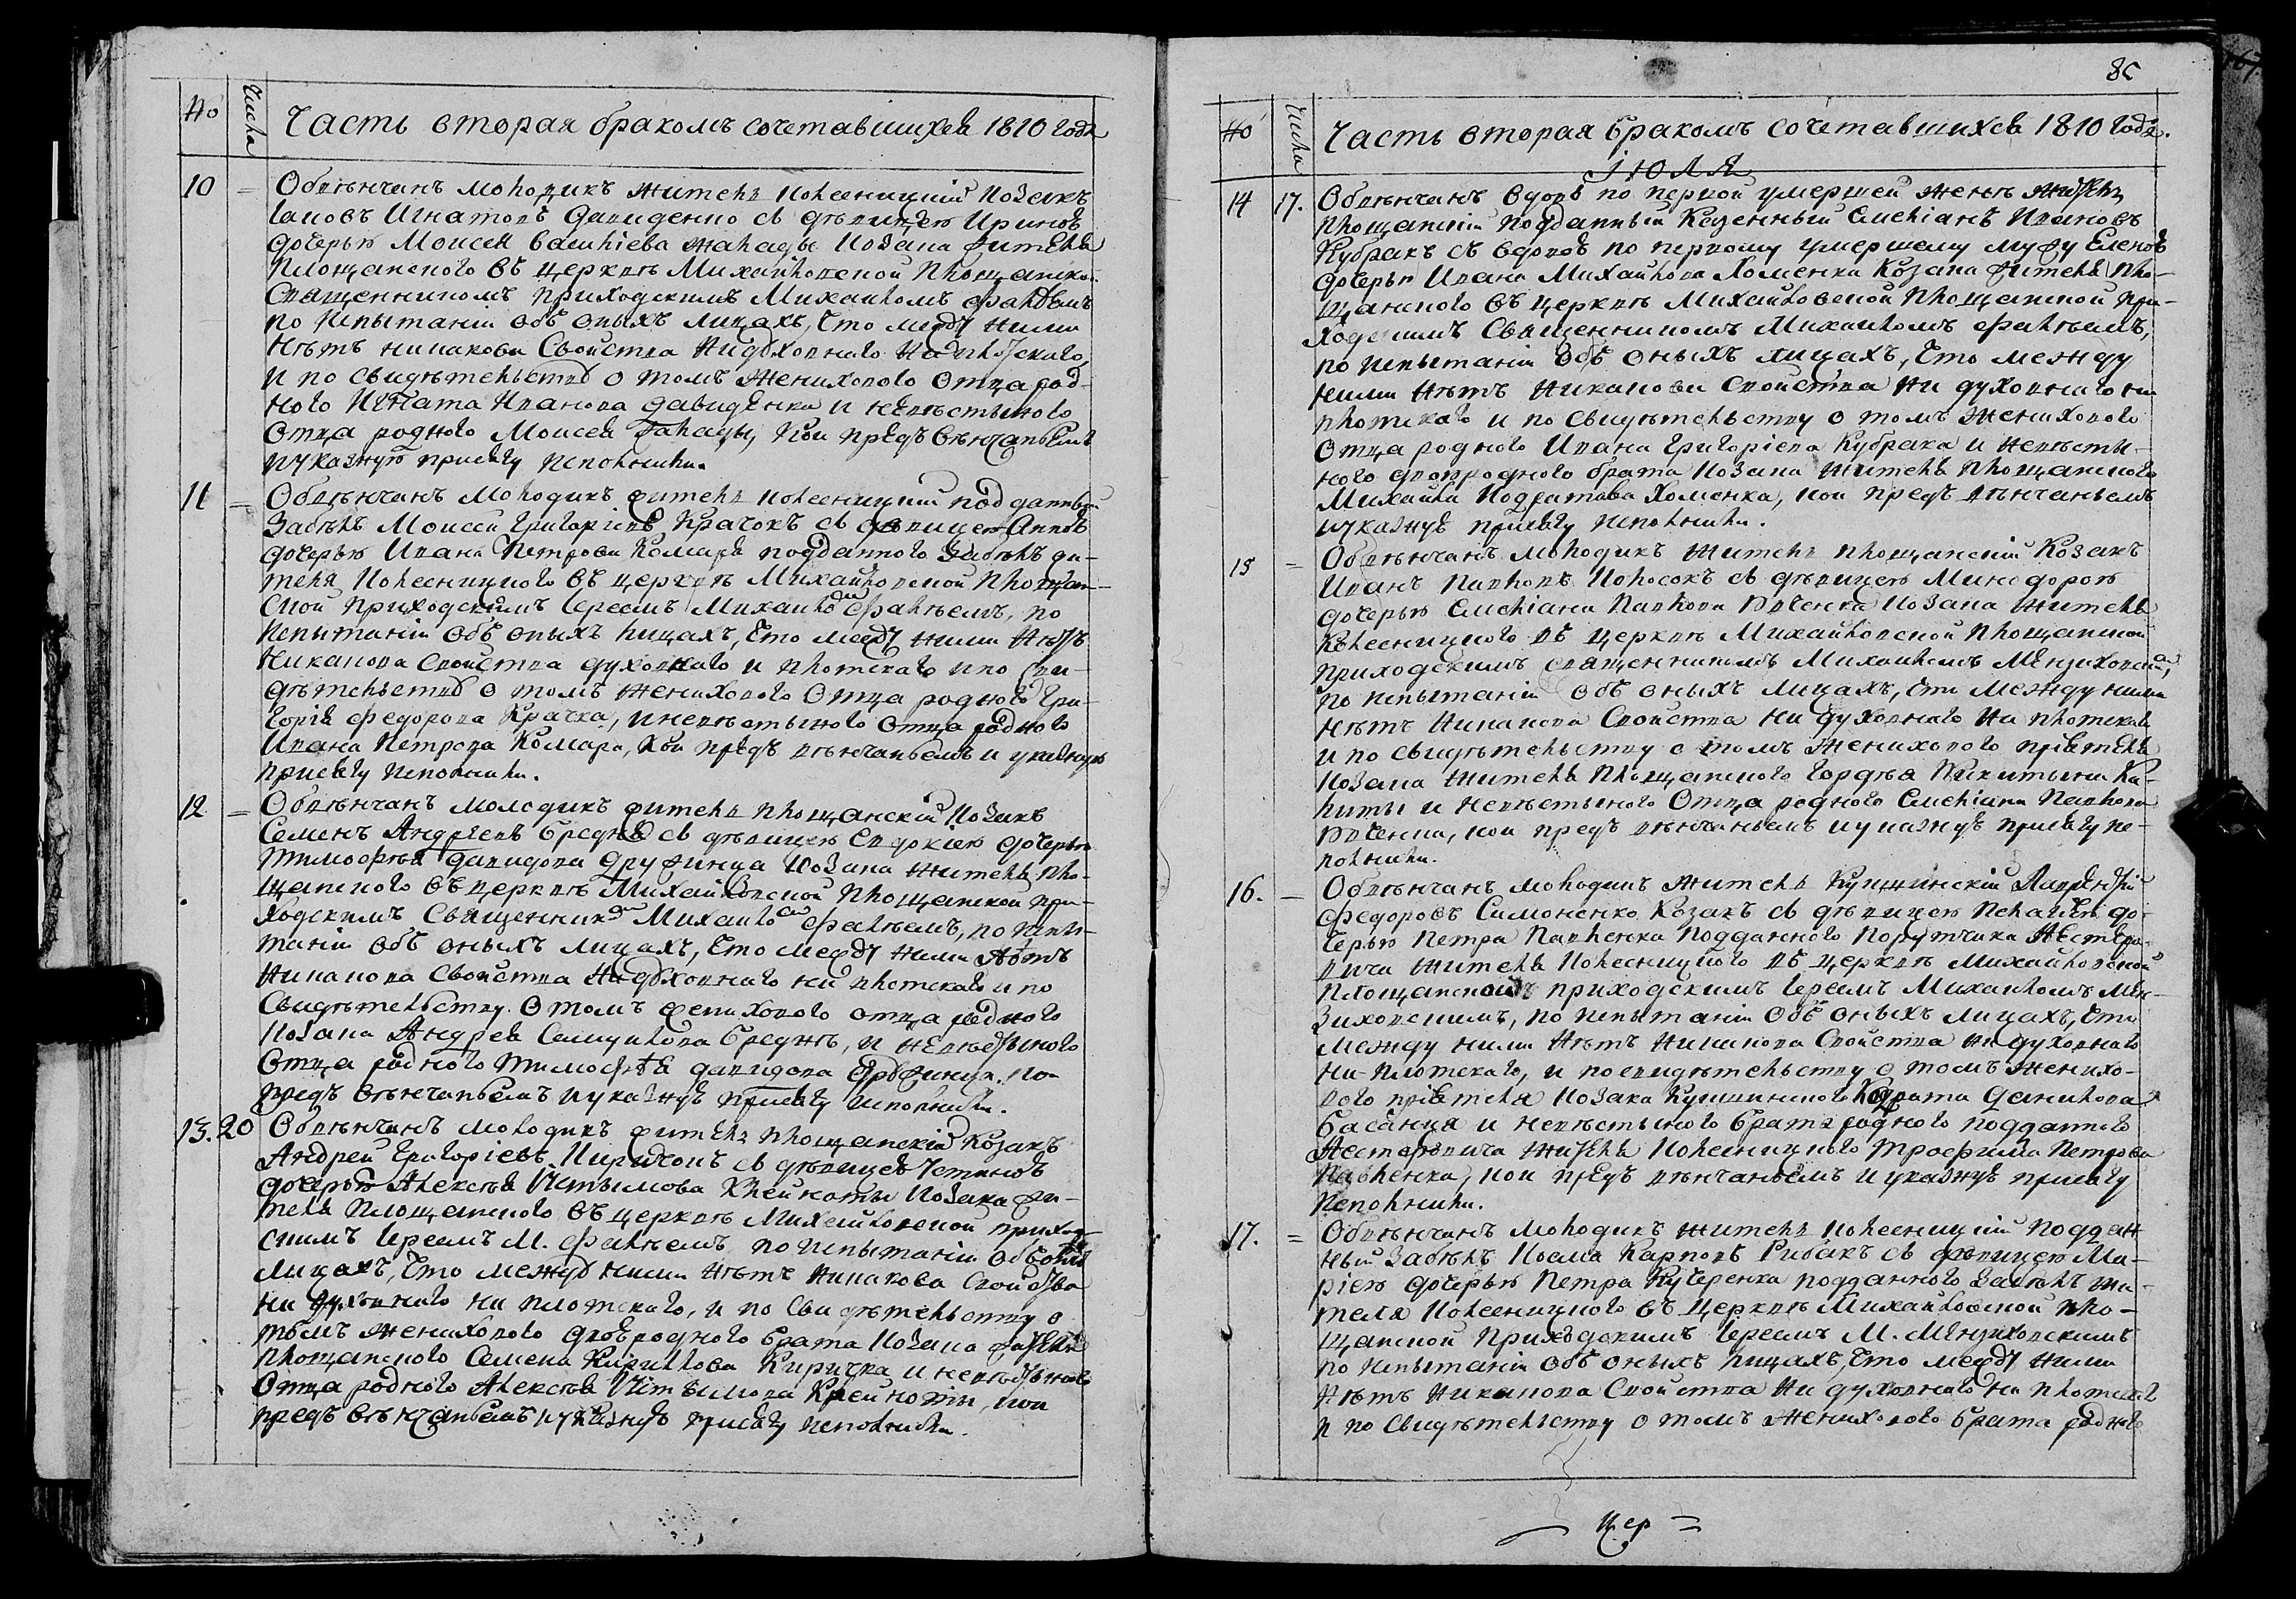 № Числа Часть вторая бракомъ сочетавшихся 1810 года
10 = Обвѣнчанъ молодикъ житель колесницкій козакъ
Игнатовъ Давиденко съ дѣвицею Ириною
дочерью Моисея жалады козака жителя
площанского въ церквѣ Михайловской площанской
священникомъ приходскимъ Михаиломъ Фалѣемъ
по испытаніи объ оныхъ лицахъ, что между ними
нѣтъ никакова свойства ни духовнаго ни плотскаго
и по свидѣтельству о томъ женихового отца род-
ного Игната Иванова Давиденка и невѣстыного
отца родного Моисея, кои предъ вѣнчаньемъ
и указную присягу исполнили.
11 = Обвѣнчанъ молодикъ житель колесницкій подданный
Забѣлъ Моисей Григоріевъ Крачокъ съ дѣвицею Анною
дочерью Ивана Петрова Комара подданного Забѣлъ жи-
теля колесницкого въ церквѣ Михайловской площан-
ской приходскимъ іереемъ Михаиломъ Фалѣемъ, по
испытаніи объ оныхъ лицахъ, что между ними нѣтъ
никакова свойства духовнаго и плотскаго и по сви-
дѣтельству о томъ женихового отца родного Гри-
горія Федорова Крачка, и невѣстыного отца родного
Ивана Петрова Комара, кои предъ вѣнчаньемъ и указную
присягу исполнили.
12 = Обвѣнчанъ молодикъ житель площанскій козакъ
Семенъ Андреевъ Средня съ дѣвицею Евдокіею дочерью
Тимофѣя Давидова Дружинца козака жителя пло-
щанского въ церквѣ Михайловской площанской при-
ходскимъ священникомъ Михаиломъ Фалѣемъ, по испы-
таніи объ оныхъ лицахъ, что между ними нѣтъ
никакова свойства ни духовнаго ни плотскаго и по
свидѣтельству о томъ женихового отца родного
козака Андрея Самуилова Средня, и невѣстыного
отца родного Тимофѣя Давидова Дружинца, кои
предъ вѣнчаньемъ и указную присягу исполнили.
13. 20 Обвѣнчанъ молодикъ житель площанскій козакъ
Андрей Григоріевъ Киричокъ съ дѣвицею Устиною
дочерью Алексѣя козака жи-
теля площанского въ церквѣ Михайловской приход-
скимъ іереемъ М. Фалѣемъ по испытаніи объ оныхъ
лицахъ, что между ними нѣтъ никакова свойства
ни духовнаго ни плотскаго, и по свидѣтельству о
томъ женихового двоюродного брата козака жителя
площанского Семена Кирилова Киричка и невѣстыного
отца родного Алексѣя кои
предъ вѣнчаньемъ и указную присягу исполнили.
№ Числа Часть вторая бракомъ сочетавшихся 1810 года.
Іюля
14 17. Обвѣнчанъ вдовъ по первой умершей женѣ житель
площанскій подданный казенный Емеліанъ Ивановъ
Кубракъ съ вдовою по первому умершему мужу Еленою
дочерью Ивана Михайлова Хоменка козака жителя пло-
щанского въ церквѣ Михайловской площанской при-
ходскимъ священникомъ Михаиломъ Фалѣемъ,
по испытаніи объ оныхъ лицахъ, что между
ними нѣтъ никакова свойства ни духовнаго ни
плотскаго и по свидѣтельству о томъ женихового
отца родного Ивана Григоріева Кубрака и невѣсты-
ного двоюродного брата козака жителя площанского
Михайла Хоменка, кои предъ вѣнчаньемъ
и указную присягу исполнили.
15 = Обвѣнчанъ молодикъ житель площанскій козакъ
Иванъ Павловъ Колосокъ съ дѣвицею Минодорою
дочерью Емеліана Павлова козака жителя
колесницкого въ церквѣ Михайловской площанской
приходскимъ священникомъ Михаиломъ Мензиховскимъ,
по испытаніи объ оныхъ лицахъ, что между ними
нѣтъ никакова свойства ни духовнаго ни плотскаго
и по свидѣтельству о томъ женихового пріятеля
козака жителя площанского Гордѣя Никитына Ка-
литы и невѣстыного отца родного Емеліана Павлова
кои предъ вѣнчаньемъ и указную присягу ис-
полнили.
16. — Обвѣнчанъ молодикъ житель кущинскій Лаврентій
Федоровъ Симоненко козакъ съ дѣвицею Пелагіею до-
черью Петра Павленка подданного порутчика Нестеро-
вича жителя колесницкого въ церквѣ Михайловской
площанской приходскимъ іереемъ Михаиломъ Мен-
зиховскимъ, по испытаніи объ оныхъ лицахъ, что
между ними нѣтъ никакова свойства ни духовнаго
ни плотскаго, и по свидѣтельству о томъ женихо-
вого пріятеля козака кущинского Кодрата Данилова
Басанця и невѣстыного брата родного подданного
Нестеровича жителя колесницкого Трофима Петрова
Павленка, кои предъ вѣнчаньемъ и указную присягу
исполнили.
17. = Обвѣнчанъ молодикъ житель колесницкій поддан
ный Забѣлъ Косма Карповъ Рибакъ съ дѣвицею Ма-
ріею дочерью Петра Кучеренка подданного Забѣлъ жи-
теля колесницкого въ церквѣ Михайловской пло-
щанской приходскимъ іереемъ М. Мензиховскимъ
по испытаніи объ оныхъ лицахъ, что между ними
нѣтъ никакова свойства ни духовнаго ни плотскаго
и по свидѣтельству о томъ женихового брата родного